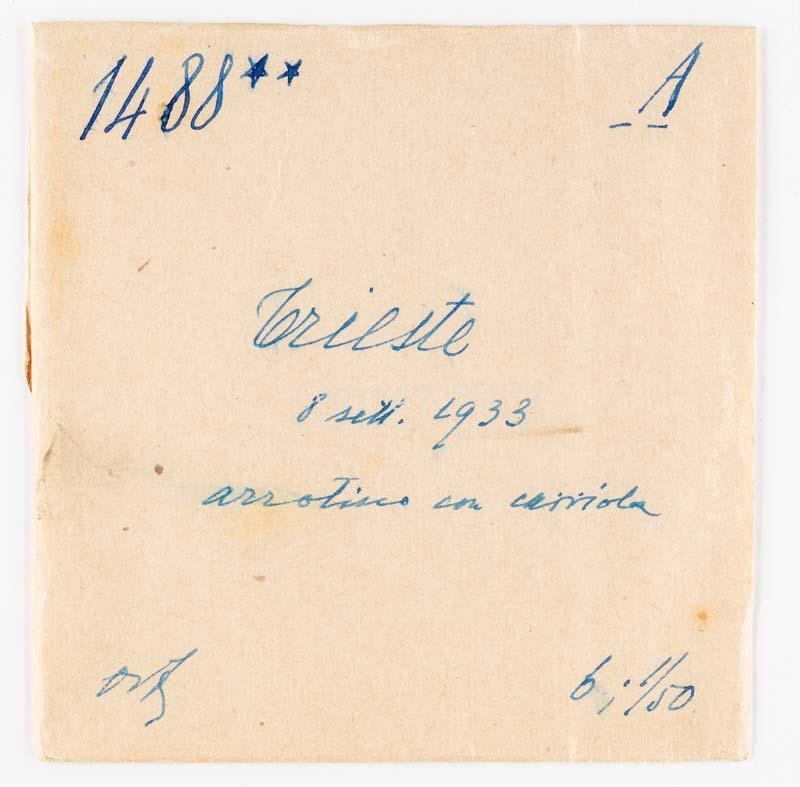 1488** A
Trieste
8 sett. 1933
arrotino con carriola
6; 1/50